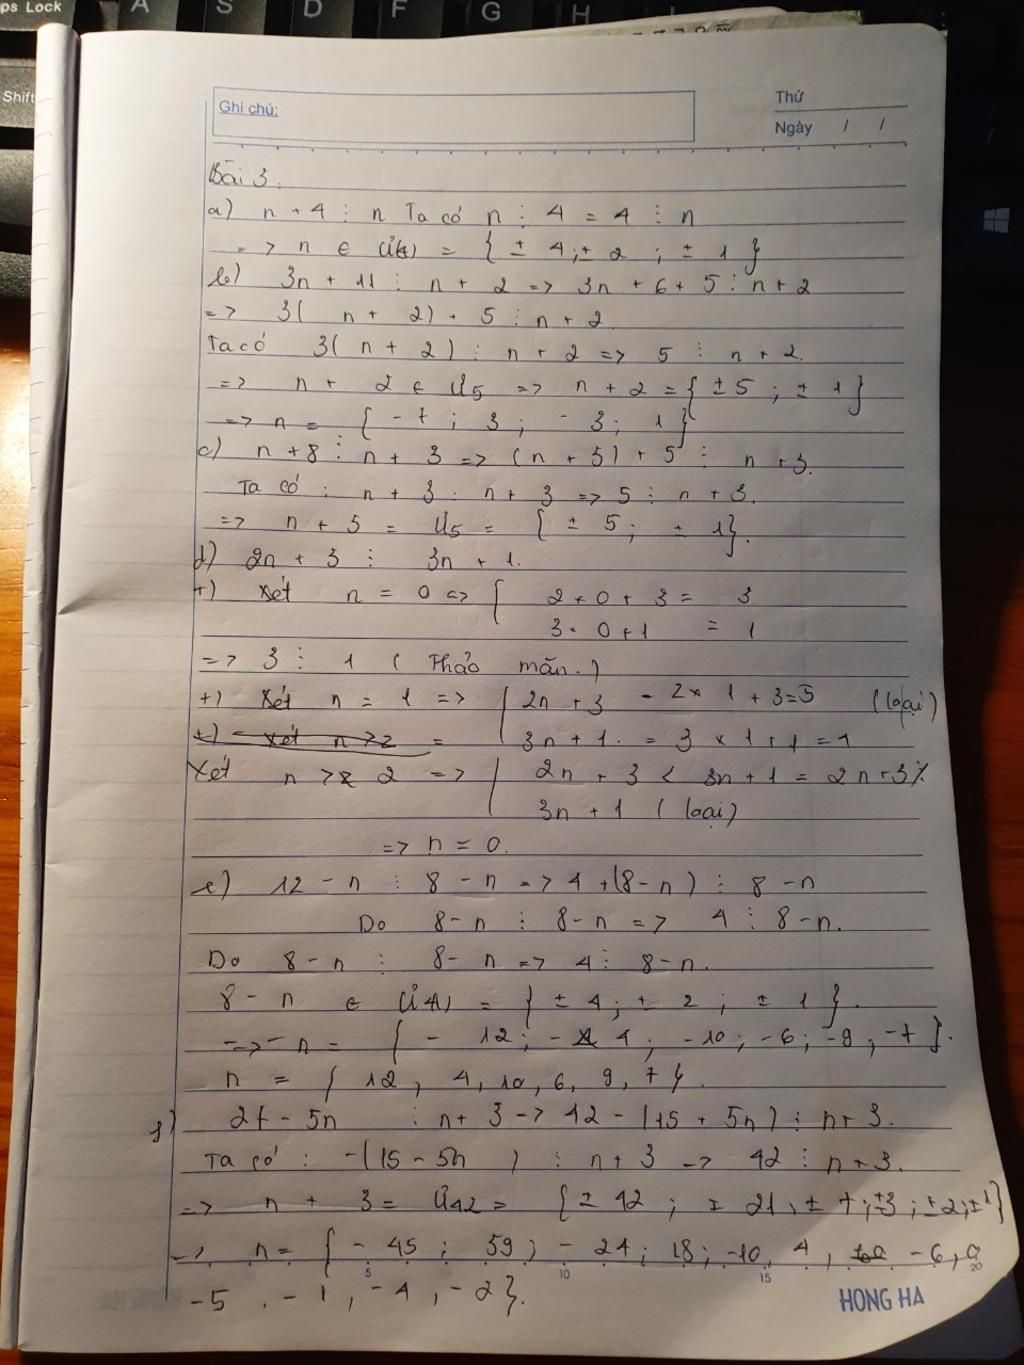 Ghi chú:
Thứ
Ngày / /
Bài 3:
a) n + 4 ⋮ n Ta có n ⋮ 4 = 4 ⋮ n
=> n ∈ Ư(4) = { ± 4 ; ± 2 ; ± 1 }
b) 3n + 11 ⋮ n + 2 => 3n + 6 + 5 ⋮ n + 2
=> 3( n + 2) + 5 ⋮ n + 2
Ta có 3( n + 2 ) ⋮ n + 2 => 5 ⋮ n + 2.
=> n + 2 ∈ Ư5 => n + 2 = { ± 5 ; ± 1 }
=> n = { - 7 ; 3 ; - 3 ; 1 }
c) n + 8 ⋮ n + 3 => (n + 3) + 5 ⋮ n + 3.
Ta có : n + 3 ⋮ n + 3 => 5 ⋮ n + 3.
=> n + 3 = Ư5 = { ± 5 ; ± 1 }.
d) 2n + 3 ⋮ 3n + 1.
+) Xét n = 0 => { 2 + 0 + 3 = 3
3 . 0 + 1 = 1
=> 3 ⋮ 1 ( Thảo mãn. )
+) Xét n = 1 => { 2n + 3 = 2 × 1 + 3 = 5 (loại)
3n + 1. = 3 × 1 + 1 = 4
Xét n > 2 => { 2n + 3 < 3n + 1 = 2n + 3 ⋮̸
3n + 1 ( loại)
=> n = 0.
e) 12 - n ⋮ 8 - n => 4 + (8 - n) ⋮ 8 - n
Do 8 - n ⋮ 8 - n => 4 ⋮ 8 - n.
Do 8 - n ⋮ 8 - n => 4 ⋮ 8 - n.
8 - n ∈ Ư(4) = { ± 4 ; ± 2 ; ± 1 }.
=> - n = { - 12 ; - 4 ; -10 ; -6 ; -9 , -7 }.
n = { 12 , 4 , 10 , 6 , 9 , 7 }.
f) 27 - 5n ⋮ n + 3 => 42 - (15 + 5n) ⋮ n + 3.
Ta có : -(15 - 5n ) ⋮ n + 3 => 42 ⋮ n + 3.
=> n + 3 = Ư42 = { ± 42 ; ± 21 , ± 7 ; ±3 ; ±2 , ±1 }
=> n = { - 45 ; 59 ; - 24 ; 18 ; -10 , 4 , - 6 , 0
5 10 15 20
-5 , - 1 , - 4 , - 2 }.
HONG HA